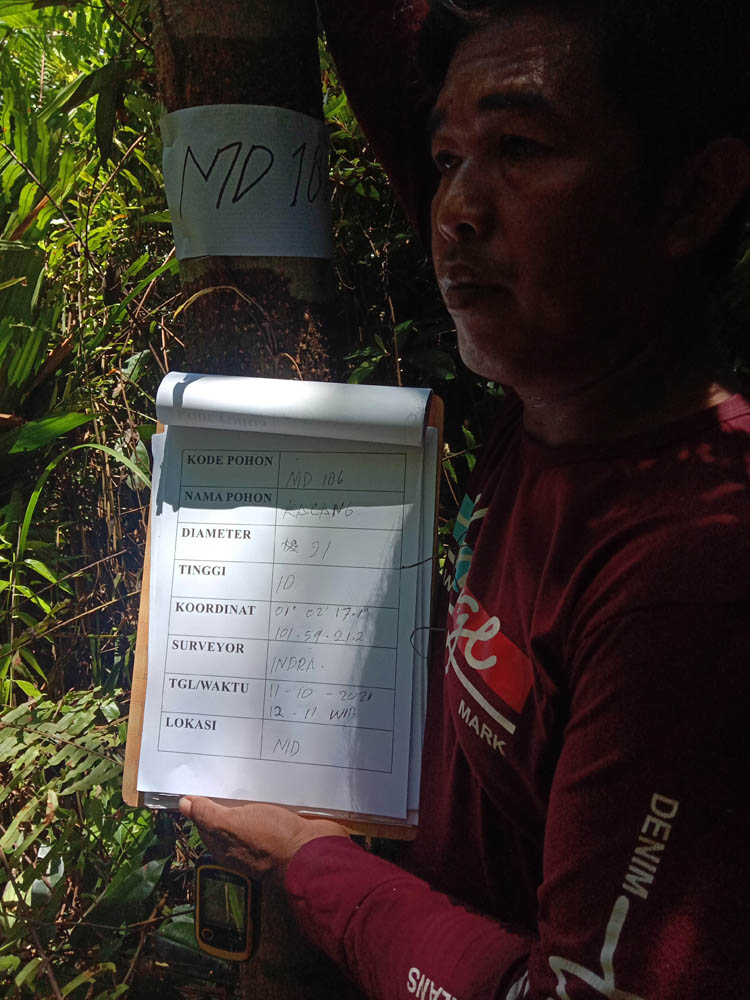 MD 18
KODE POHON MD 186
NAMA POHON KACANG
DIAMETER 91
TINGGI 10
KOORDINAT 01° 02' 17.1"
101.59.21.2
SURVEYOR INDRA.
TGL/WAKTU 11-10-2021
12-11 WIB
LOKASI MD
MARK
DENIM